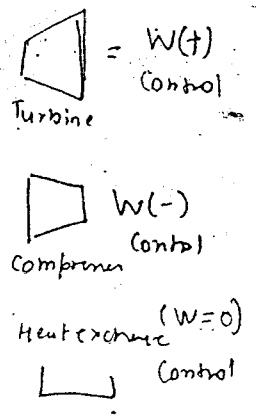 = W(+)
Control
Turbine
W(-)
Control
Compressor
Heat exchange (W=0)
Control